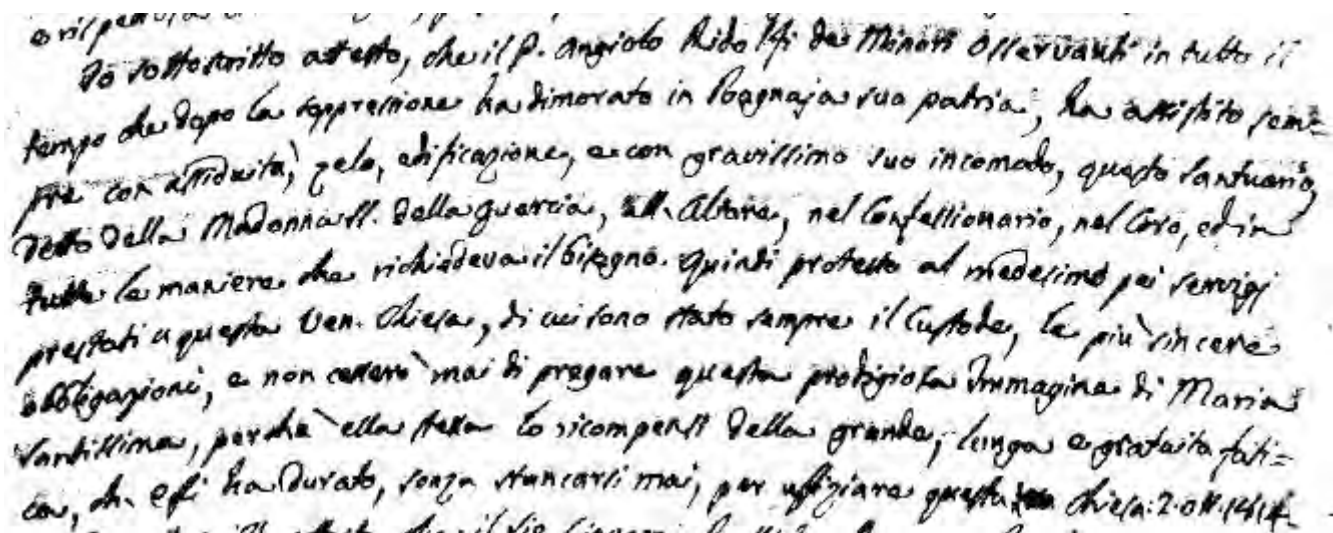 Io sottoscritto attesto, che il P. Angiolo Ridolfi de Minori Osservanti in tutto il
tempo che dopo la soppressione ha dimorato in Bagnaja sua patria, ha assistito sem=
pre con assiduità, zelo, edificazione, e con gravissimo suo incomodo, questo santuario,
detto della Madonna SS. della Quercia, all'Altare, nel Confessionario, nel Coro, ed in
tutte le maniere che richiedeva il bisogno. Quindi protesto al medesimo pei servigj
prestati a questa Ven. Chiesa, di cui sono stato sempre il Custode, le più sincere
obbligazioni, e non cesserò mai di pregare questa prodigiosa Immagine di Maria
Santissima, perchè ella stessa lo ricompensi della grande, lunga e gratuita fati=
ca, ch. egli ha durato, senza stancarsi mai, per uffiziare questa Chiesa. 2. ott. 1814